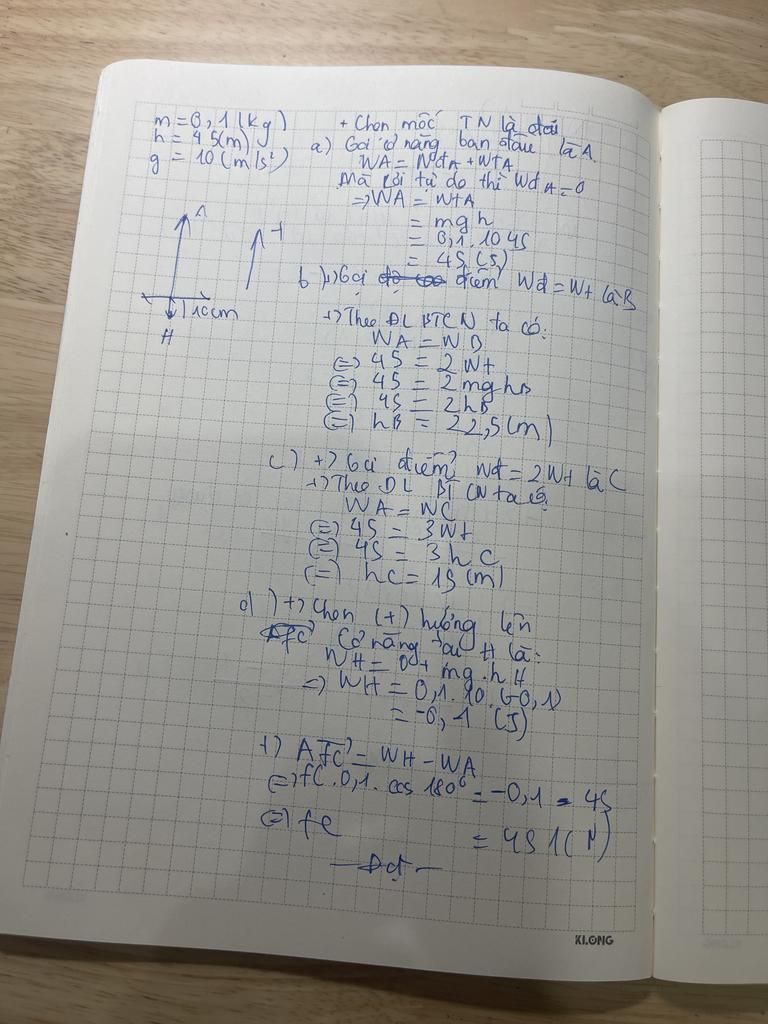 m = 0,1 (kg)
h = 45 (m)
g = 10 (m/s²)
A
+
10cm
H
+ Chọn mốc TN là đất
a) Gọi cơ năng ban đầu là A
WA = WđA + WtA
Mà rơi tự do thì WđA = 0
=> WA = WtA
= mgh
= 0,1.10 45
= 45 (J)
b) +) Gọi điểm Wđ = Wt là B
+) Theo ĐL BTCN ta có:
WA = WB
(=) 45 = 2Wt
(=) 45 = 2mghB
(=) 45 = 2hB
(=) hB = 22,5 (m)
c) +) Gọi điểm Wđ = 2Wt là C
+) Theo ĐL BT CN ta có
WA = WC
(=) 45 = 3Wt
(=) 45 = 3hC
(=) hC = 15 (m)
d) +) Chọn (+) hướng lên
Cơ năng tại H là:
WH = 0 + mg.hH
=> WH = 0,1.10.(-0,1)
= -0,1 (J)
+) AfC = WH - WA
(=) fC.0,1.cos 180° = -0,1 - 45
(=) fC = 451 (N)
KLONG